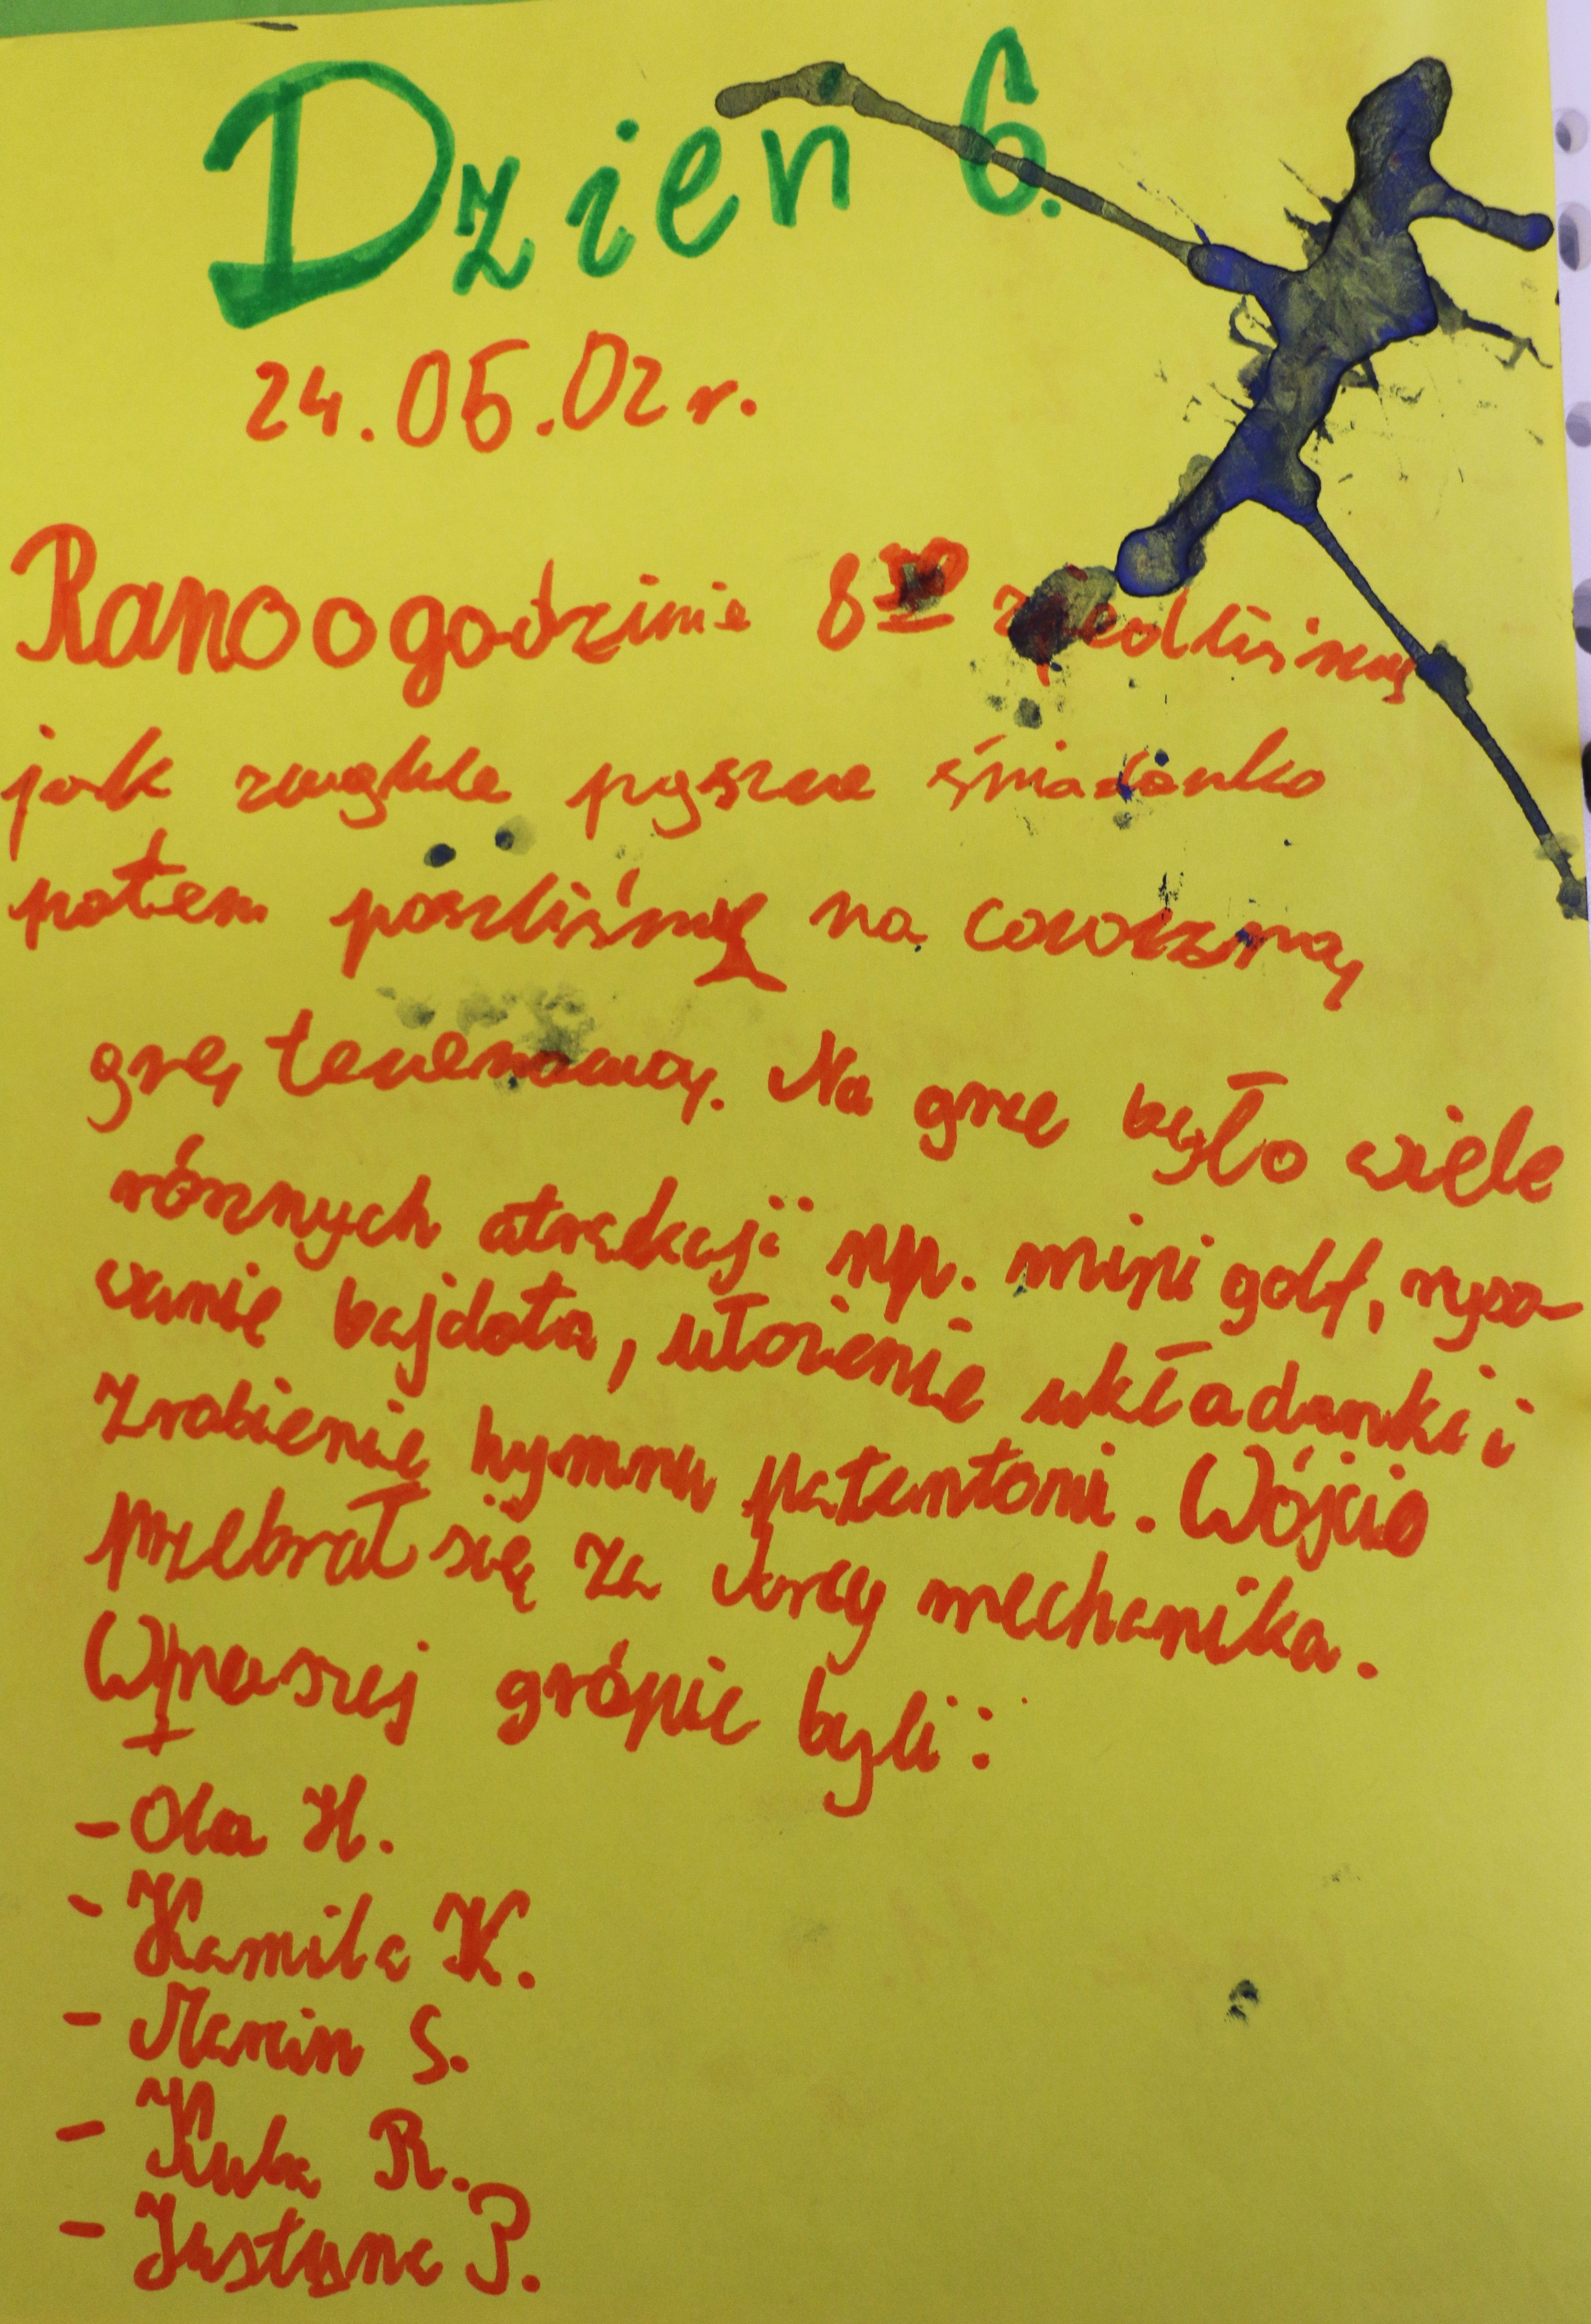 Dzien 6.
24.05.02 r.
Rano o godzinie 8 zjedliśmy
jak zwykle pyszne śniadanko
potem poszliśmy na coroczną
grę terenową. Na grze było wiele
róznych atrakcji np. mini golf, ryso-
wanie bajdota, ułożenie układanki i
Zrobienie hymnu patentoni. Wójcio
przebrał się za Jorcy mechanika.
W naszej grópie byli:
- Ola H.
- Kamila K.
- Marcin S.
- Kuba R.
- Justyna P.